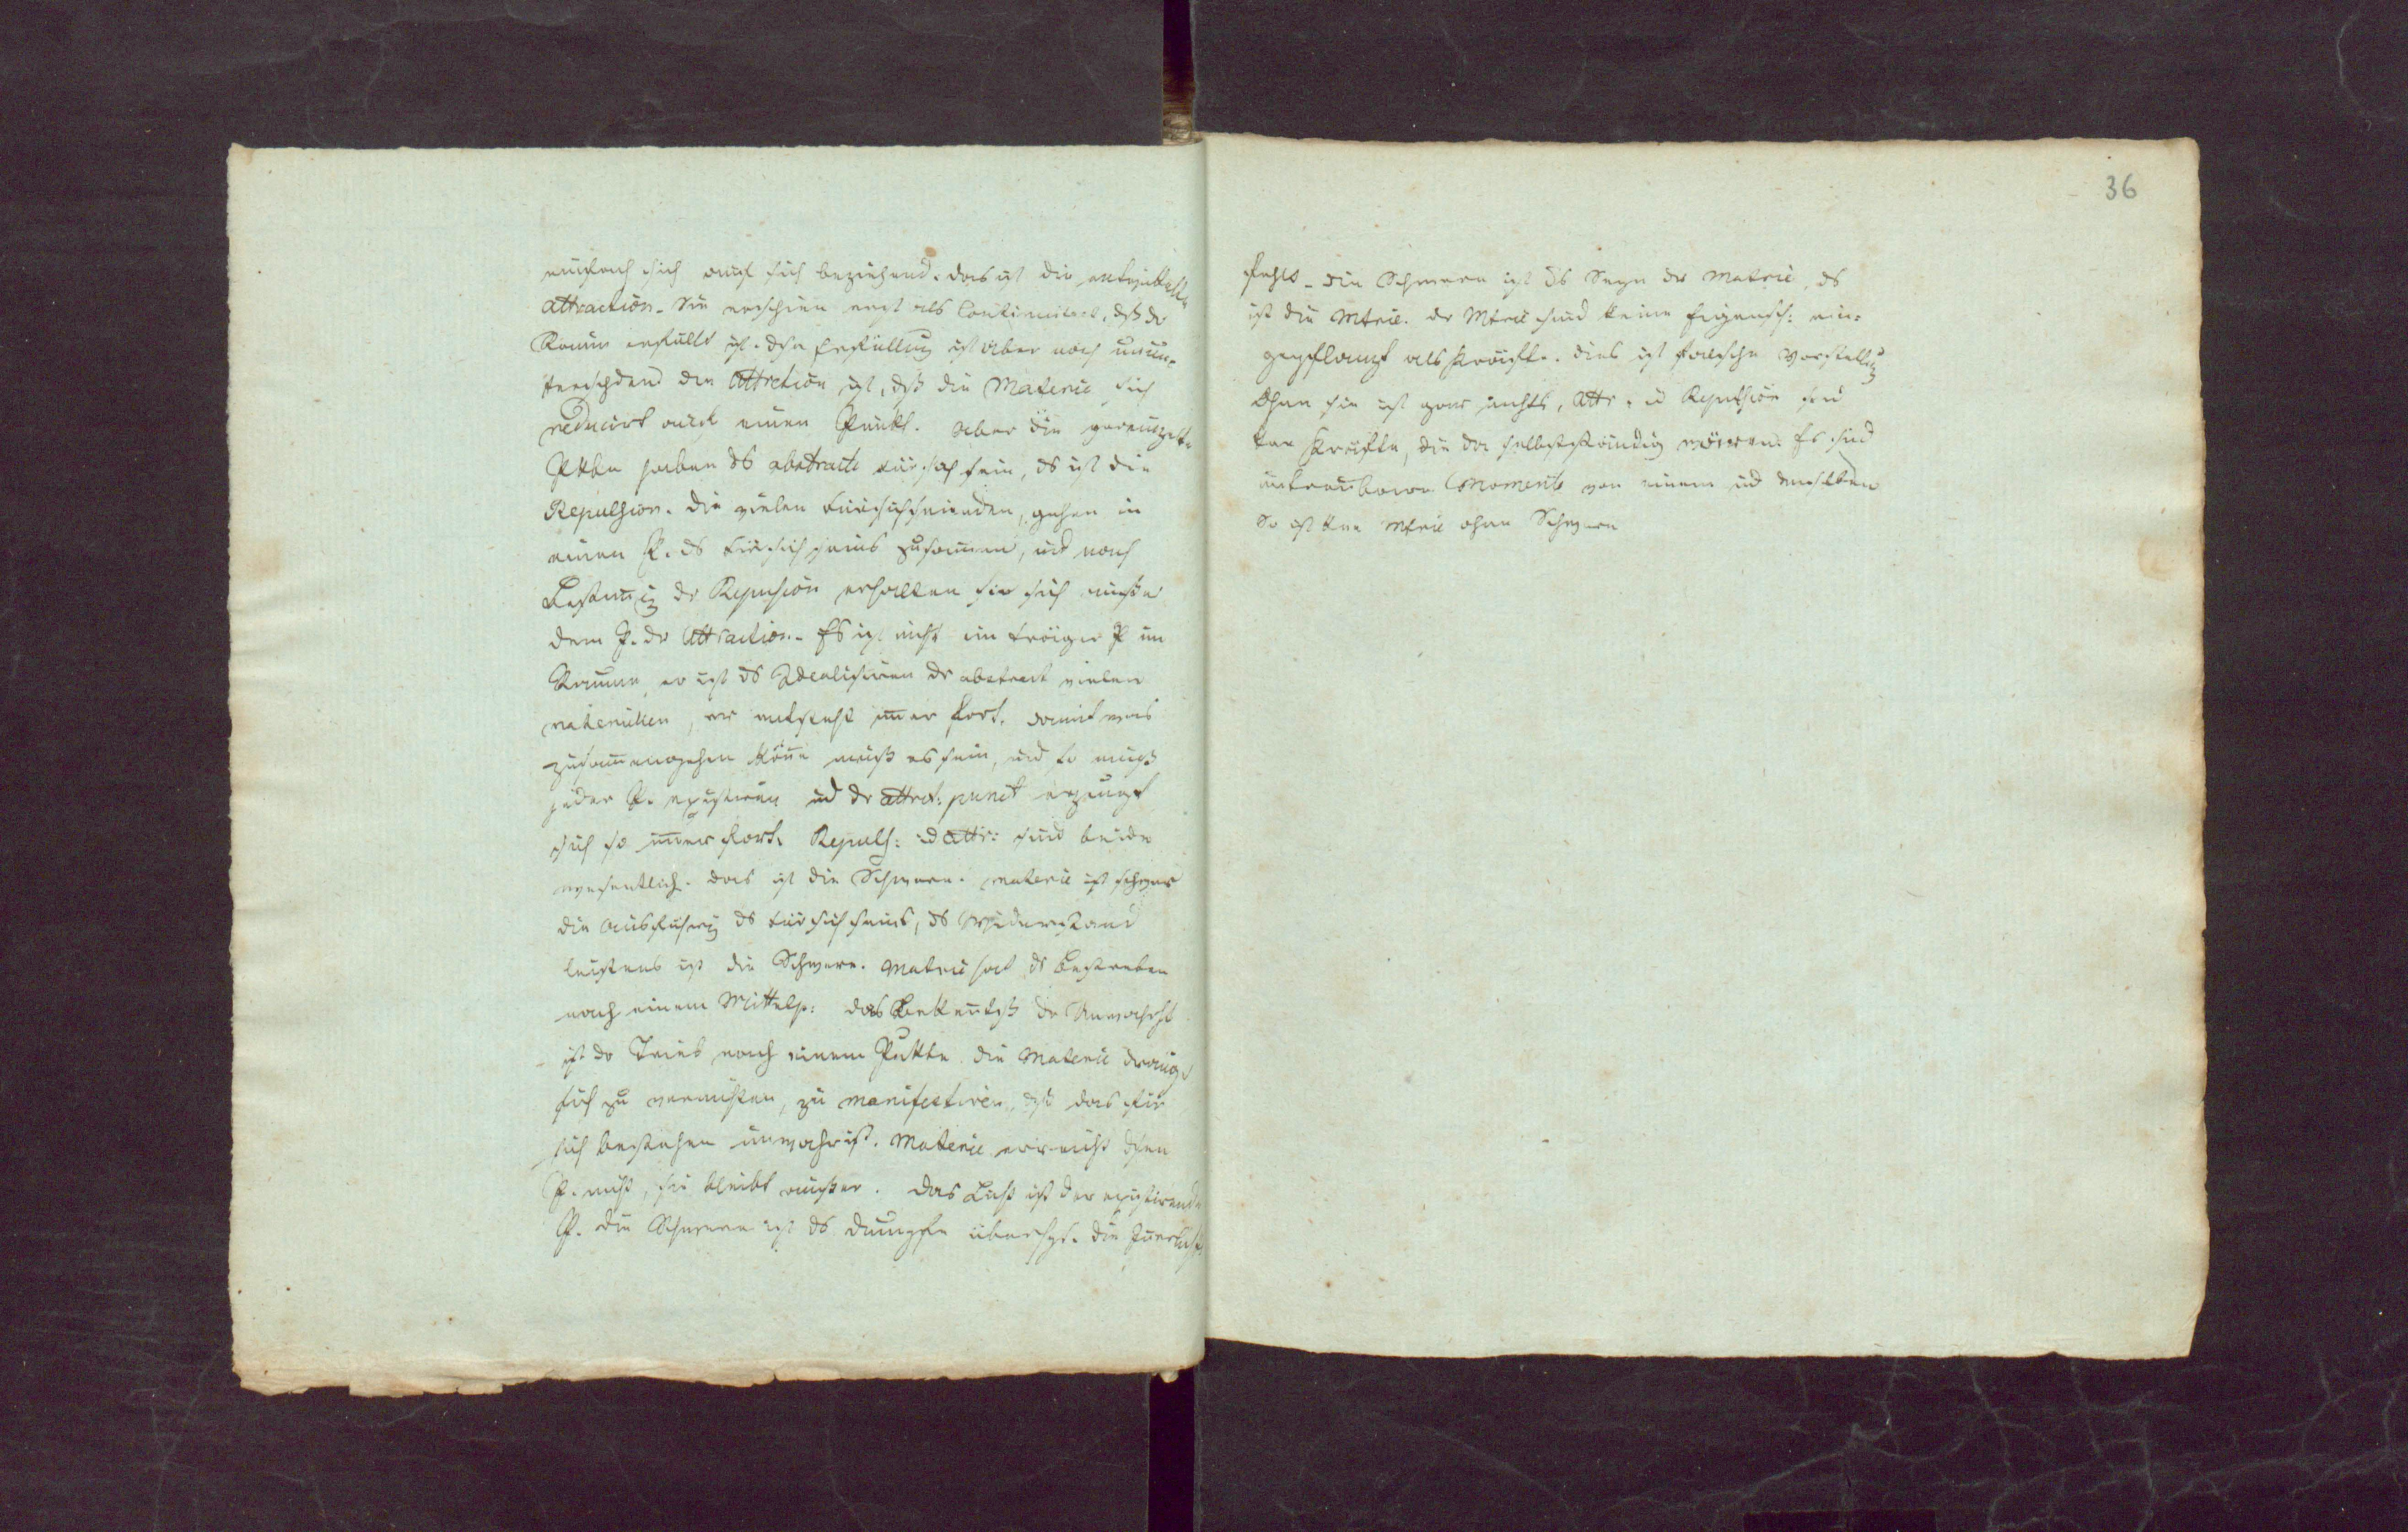 einfach sich auf sich beziehend. das ist die
attraction. Sie erschien erst als Continuitaet, dß dr
Raum erfüllt ist. dse Erfüllung ist aber noch unun-
terschdend die Attrction ist, dß die Materie sich
reducirt auf einen Punkt. aber die
Pktn haben ds abstracte für sich sein, ds ist die
Repulsion. die vielen fürsichseienden, gehen in
einen P. ds fürsichseins zusammen, und nach
Bestimg dr Repulsion erhalten sie sich außer
dem P. dr Attraction. Es ist nicht ein träger P im
Raume, er ist ds Idealisiren dr abstract vielen
materiellen, er entsteht imer fort. damit was
zusammengehen köne muß es sein, und so muß
jeder P. existiren und dr attrct: punct erzeugt
sich so imer fort. Repuls: ud attr: sind beide
wesentlich. das ist die Schwere. materie ist schwer
die Ausführg ds fürsichseins, ds Widerstand
leistens ist die Schwere. Materie hat ds Bestreben
nach einem Mittelp: das Bekentniß dr Unwahrht
ist dr Trieb nach einem Punkte. die Materie drängt
sich zu vernichten, zu manifestiren, dß das für
sich bestehen unwahr ist. Materie erreicht dsen
P. nicht, sie bleibt außer. das Licht ist der existirende
P. die Schwere ist ds dumpfe überhpt. die
36
fehlt. die Schwere ist ds Seyn der Materie, ds
ist die Mterie. dr Mterie sind keine Eigensch: ein-
gepflanzt als Kräfte. dies ist falsche Vorstellug
Ohne sie ist gar nichts, Attr. u Repulsion sind
kene Kräfte, die da selbstständig wären. Es sind
untrenbare Momente von einem und demselben
So ist kene Mterie ohne Schwere